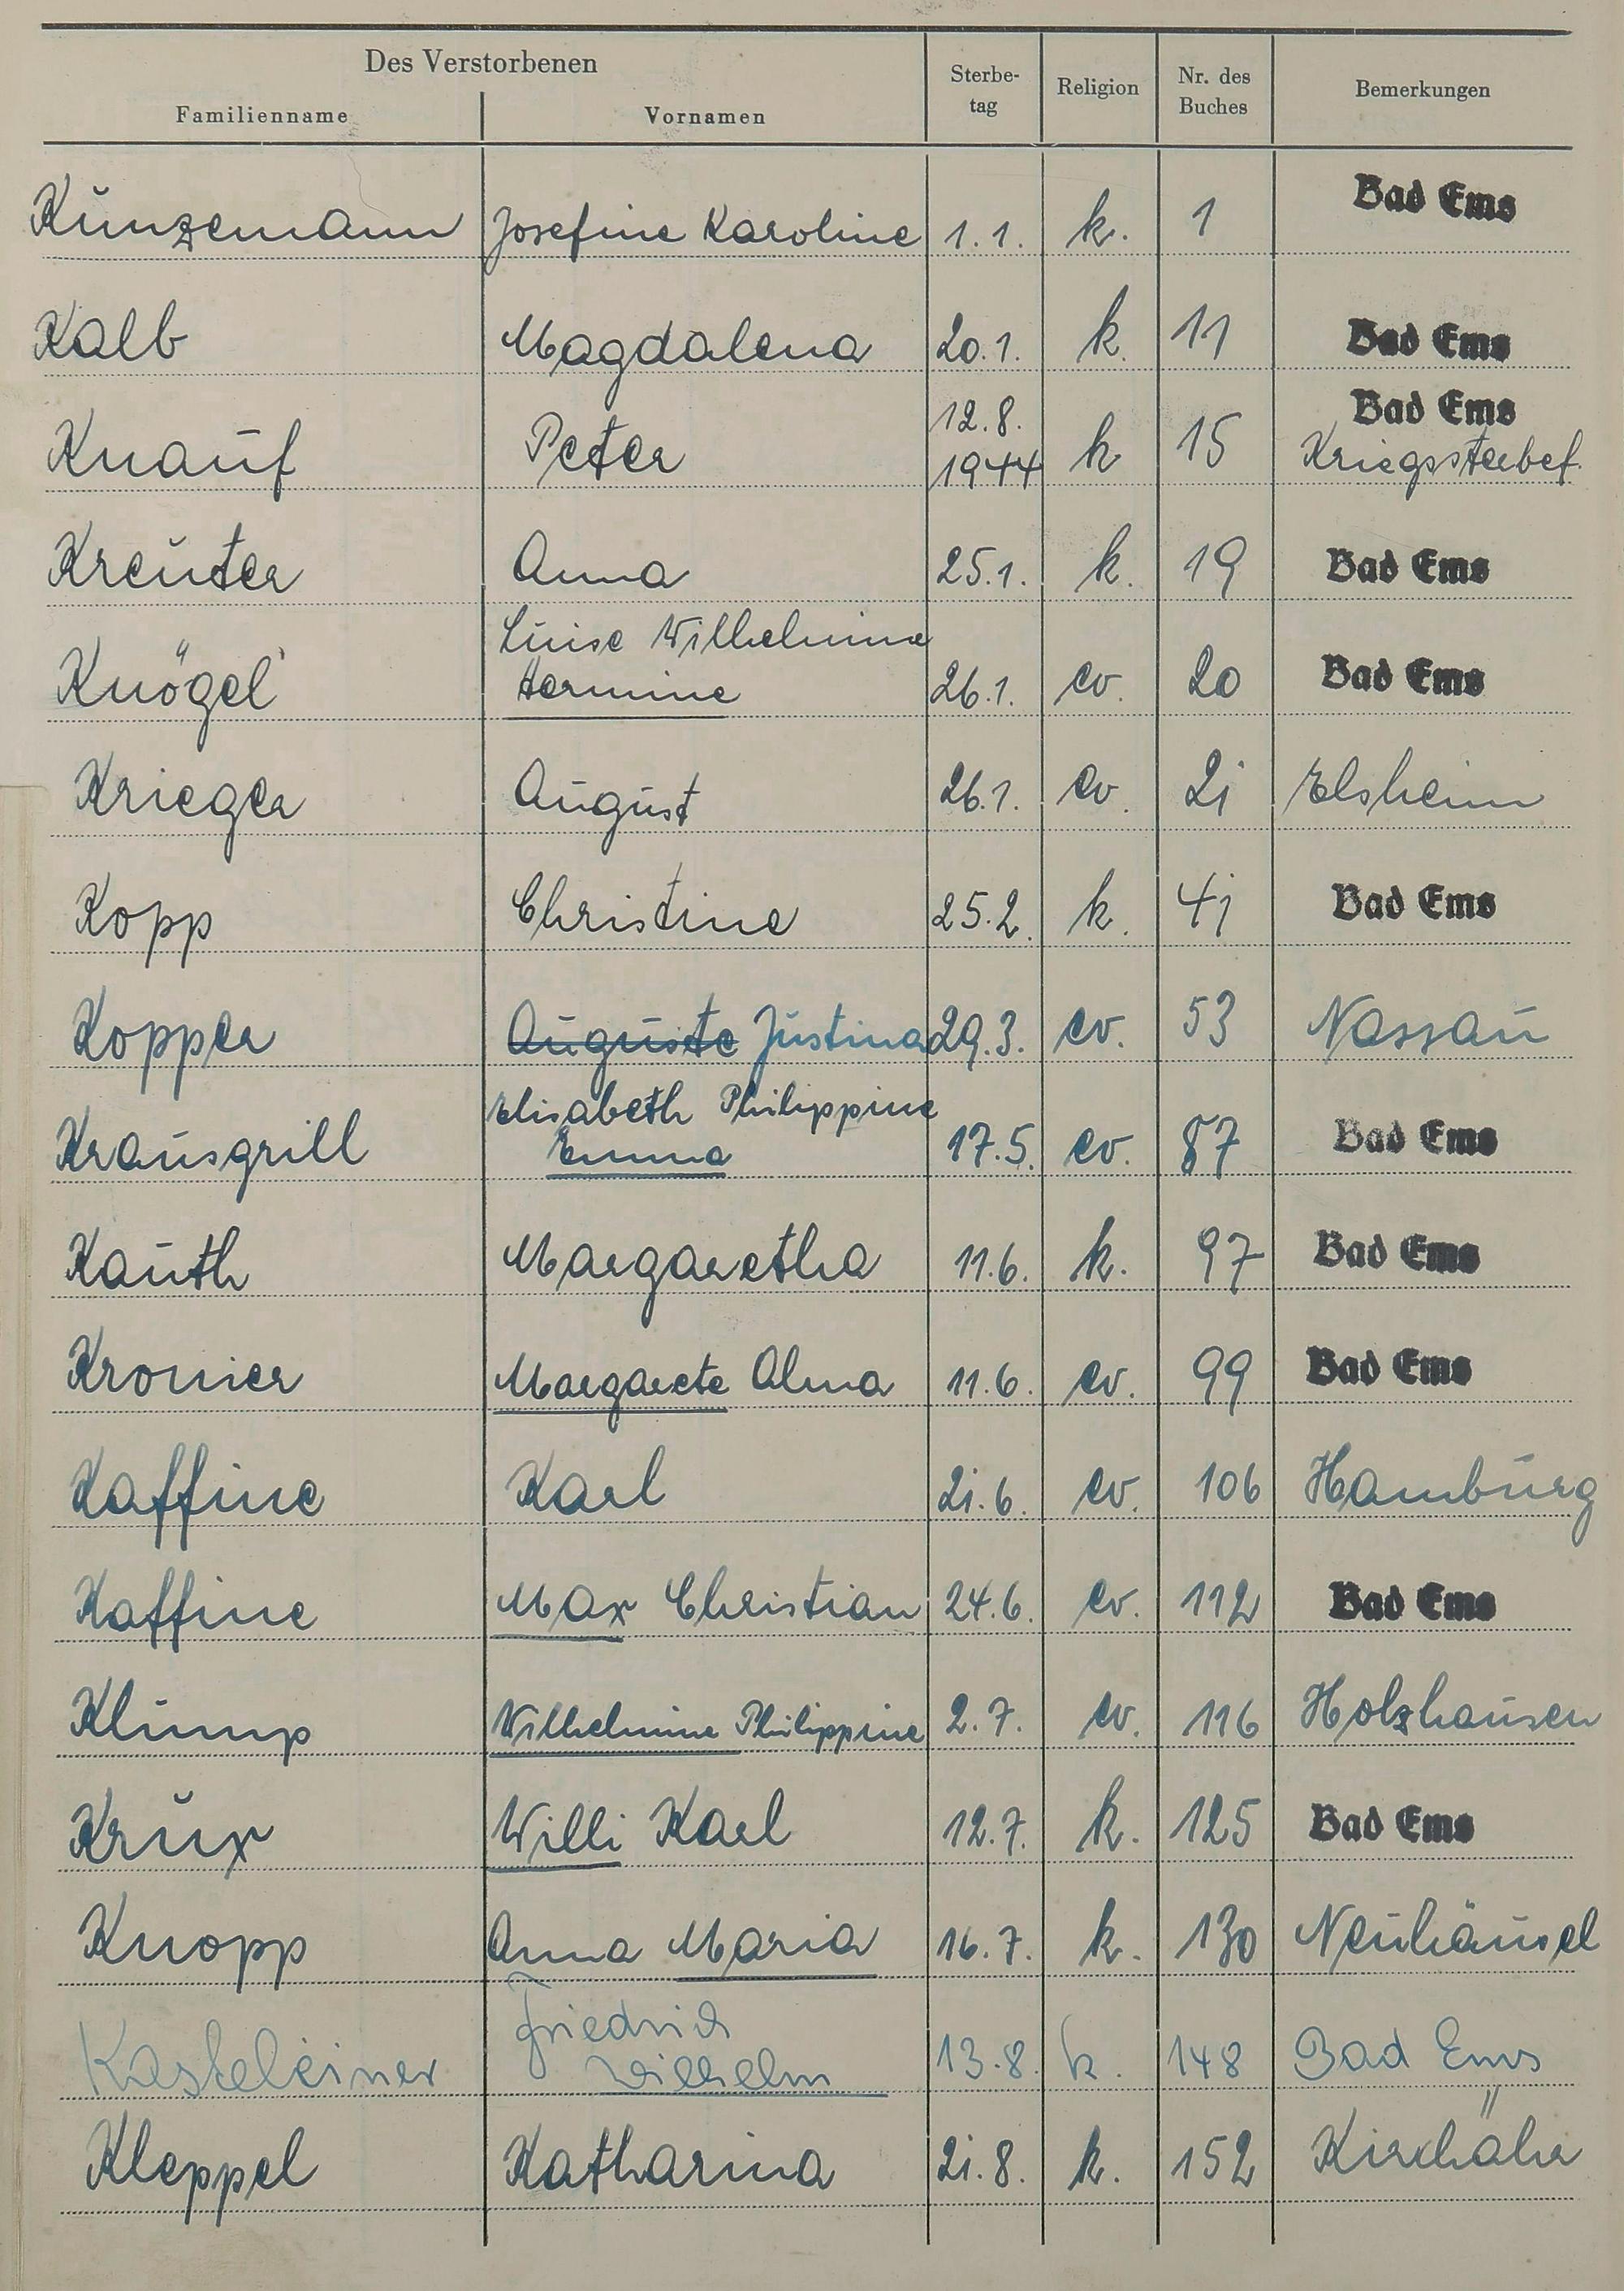 Des Verstorbenen
Familienname Vornamen Sterbe-tag Religion Nr. des Buches Bemerkungen
Kunzemann Josefine Karoline 1.1. k. 1 Bad Ems
Kalb Magdalena 20.1. k. 11 Bad Ems
Knauf Peter 12.8. 1944 k 15 Bad Ems Kriegssterbef.
Kreuter Anna 25.1. k. 19 Bad Ems
Luise Wilhelmine
Knögel Hermine 26.1. ev. 20 Bad Ems
Krieger August 26.1. ev. 21 Elsheim
Kopp Christine 25.2. k. 41 Bad Ems
Kopper Auguste Justina 29.3. ev. 53 Nassau
Elisabeth Philippine
Krausgrill Emma 17.5. ev. 87 Bad Ems
Kauth Margaretha 11.6. k. 97 Bad Ems
Kronier Margarete Alma 11.6. ev. 99 Bad Ems
Kaffine Karl 21.6. ev. 106 Hamburg
Kaffine Max Christian 24.6. ev. 112 Bad Ems
Klump Wilhelmine Philippine 2.7. ev. 116 Holzhausen
Krux Willi Karl 12.7. k. 125 Bad Ems
Knopp Anna Maria 16.7. k. 130 Neuhäusel
Friedrich
Kasteleiner Wilhelm 13.8. k. 148 Bad Ems
Kleppel Katharina 21.8. k. 152 Kirchähr